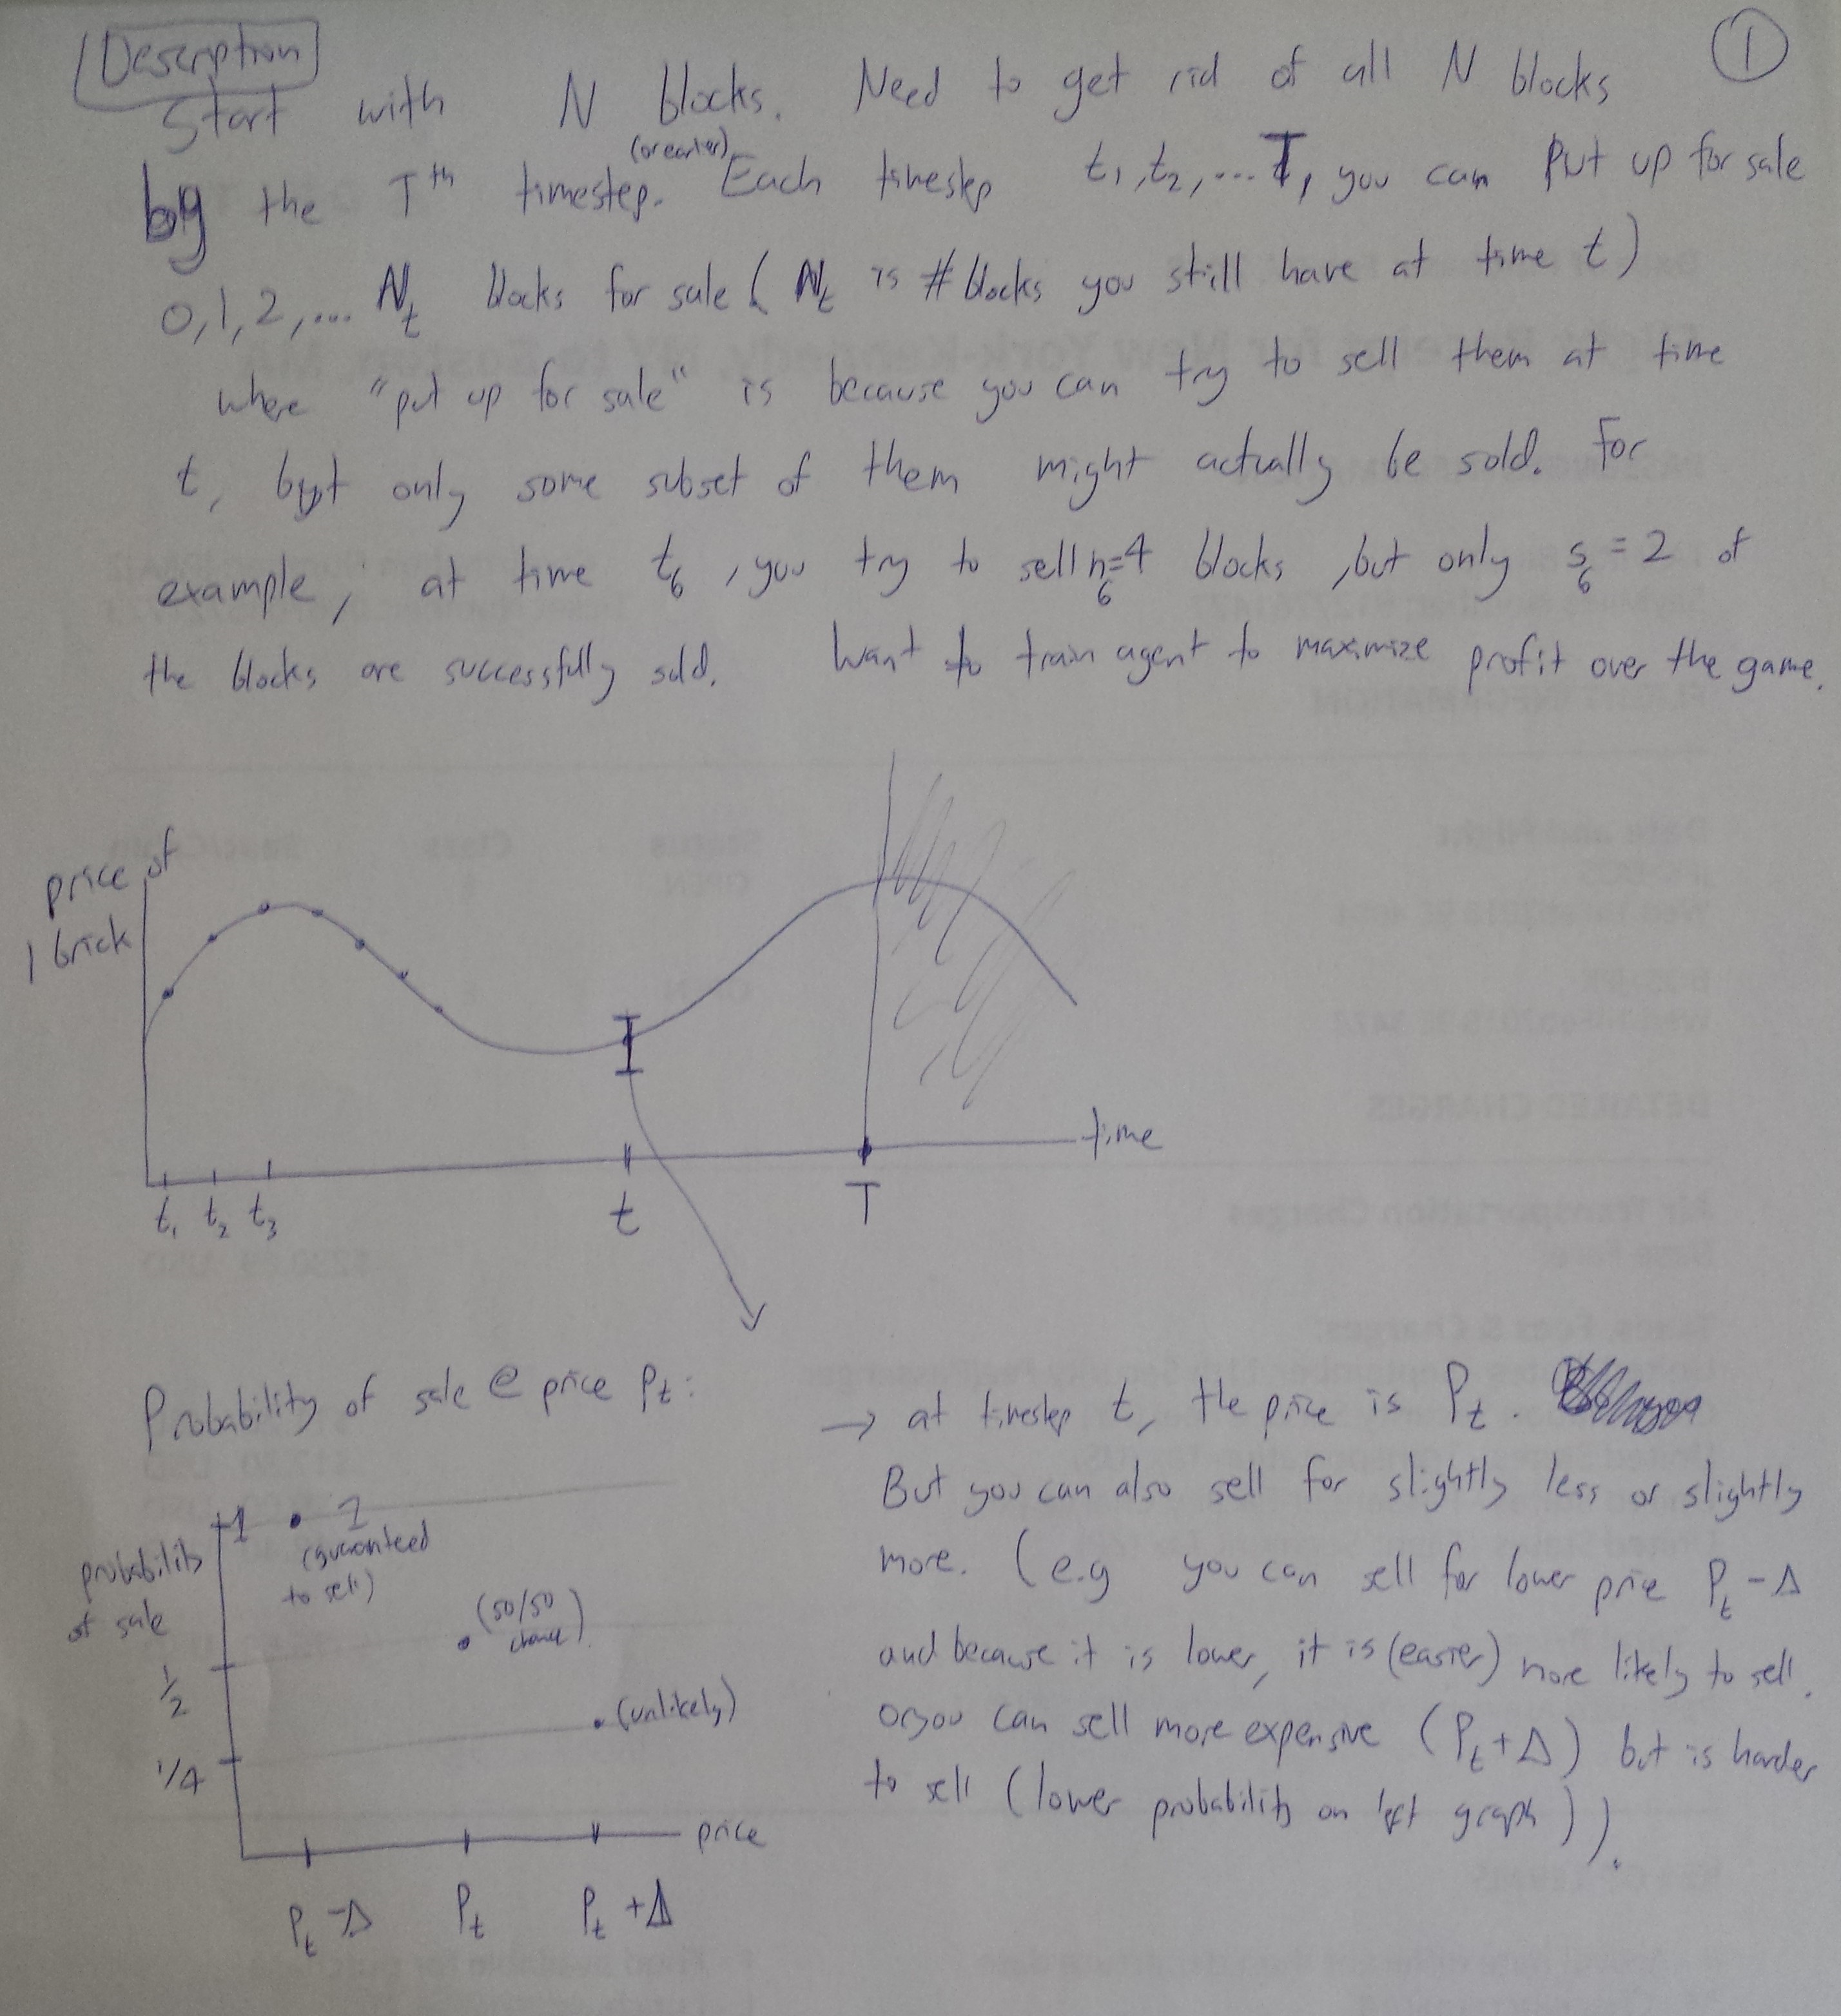 Description
①
Start with N blocks. Need to get rid of all N blocks
(or earlier)
by the Tᵗʰ timestep. Each timestep t₁, t₂, ... T, you can put up for sale
0, 1, 2, ... Nₜ blocks for sale (Nₜ is # blocks you still have at time t)
where "put up for sale" is because you can try to sell them at time
t, but only some subset of them might actually be sold. For
example, at time t₆, you try to sell n₆=4 blocks, but only s₆=2 of
the blocks are successfully sold. Want to train agent to maximize profit over the game.
price of
1 brick
time
t₁ t₂ t₃ t T
Probability of sale @ price Pₜ:
1
1
(guaranteed
to sell)
probability
of sale
(50/50
chance)
1/2
(unlikely)
1/4
price
Pₜ-Δ Pₜ Pₜ+Δ
→ at timestep t, the price is Pₜ.
But you can also sell for slightly less or slightly
more. (e.g you can sell for lower price Pₜ-Δ
and because it is lower, it is (easier) more likely to sell.
or you can sell more expensive (Pₜ+Δ) but is harder
to sell (lower probability on left graph)).